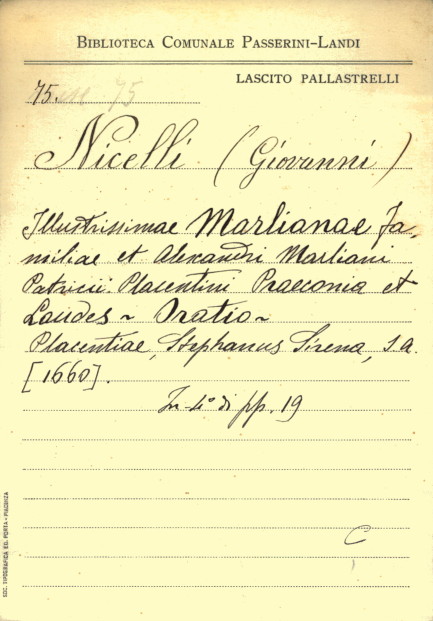 BIBLIOTECA COMUNALE PASSERINI-LANDI
LASCITO PALLASTRELLI
75. 75
Nicelli (Giovanni)
Illustrissimae Marlianae Fa,
miliae et Alexandri Marliani
Patricii Placentini Praeconia et
Laudes ~ Oratio ~
Placentiae, Stephanus Sirena, s.a.
[1660].
In-4° di pp. 19
C
SOC. TIPOGRAFICA ED. PORTA - PIACENZA